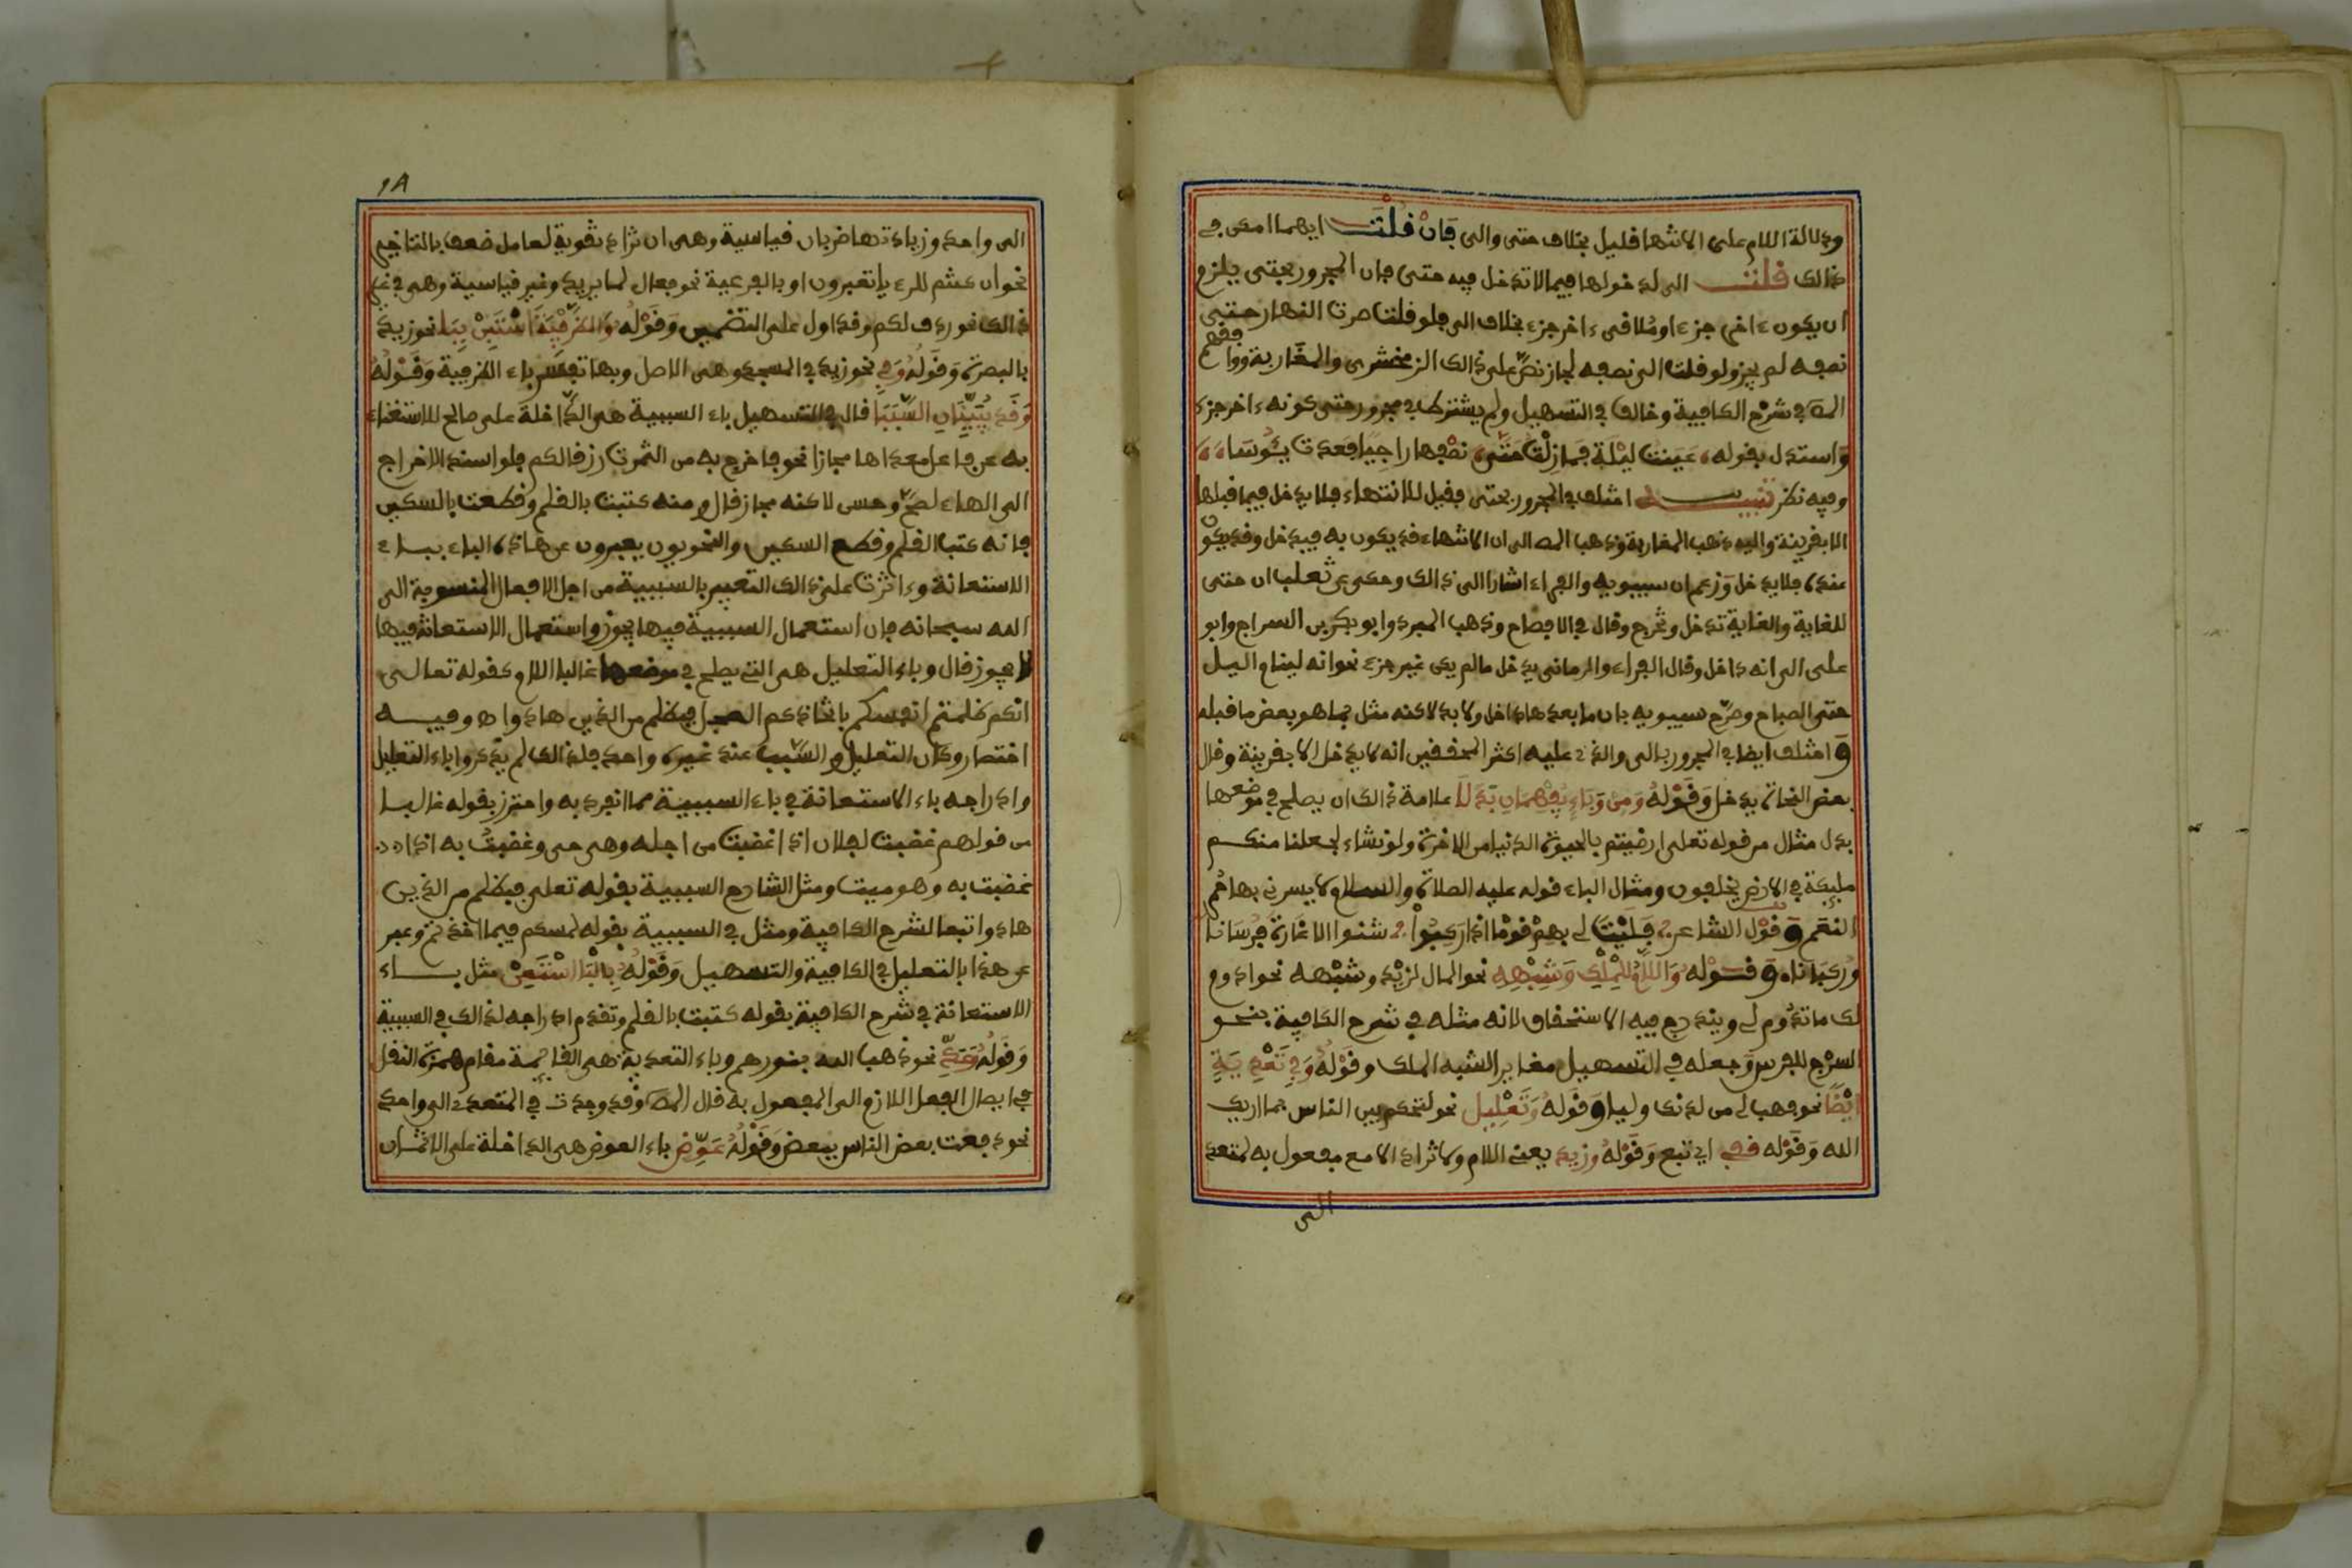 ودلالة اللام على الانتهاء قليل بخلاف حتى والى فان قلت ايهما امكن في
ذالك قلت الى لدخولها فيما لا تدخل فيه حتى فان المجرور بحتى يلزم
ان يكون ءاخر جزء او ملاقى ءاخر جزء بخلاف الى فلو قلت سرت النهار حتى
نصفه لم يجز ولو قلت الى نصفه لجاز نص على ذالك الزمخشرى والمغاربة ووافقهم
المص في شرح الكافية وخالف في التسهيل ولم يشترط في مجرور حتى كونه ءاخر جزء
واستدل بقوله عينت ليلة فما زلت حتى نصفها راجيا فعدت يئوسا
وفيه نظر تنبيه اختلف في المجرور بحتى فقيل للانتهاء فلا يدخل فيما قبلها
الا بقرينة واليه ذهب المغاربة وذهب المص الى ان الانتهاء قد يكون به فيدخل وقد يكون
عنده فلا يدخل وزعم ان سيبويه والفراء اشارا الى ذالك وحكى عن ثعلب ان حتى
للغاية والغاية تدخل وتخرج وقال في الافصاح وذهب المبرد وابو بكر بن السراج وابو
على الى انه داخل وقال الفراء والرمانى يدخل ما لم يكن غير جزء نحو انه لينام اليل
حتى الصباح وصرح سيبويه بان ما بعدها داخل ولا بد لاكنه مثل بما هو بعض ما قبله
و اختلف ايضا في المجرور بالى والذى عليه اكثر المحققين انه لا يدخل الا بقرينة وقال
بعض النحاة يدخل وقوله ومن وباء يفهمان بدلا علامة ذالك ان يصلح في موضعها
بدل مثال من قوله تعلى ارضيتم بالحيوة الدنيا من الاخرة ولو نشاء لجعلنا منكم
مليكة في الارض يخلفون ومثال الباء قوله عليه الصلاة والسلام لا يسرنى بها حمر
النعم وقول الشاعر فليت لي بهم قوما اذا ركبوا شنوا الاغارة فرسانا
وركبانا وقوله واللام للملك وشبهه نحو المال لزيد وشبهه نحو ادوم
لك ما تدوم لي ويندرج فيه الاستحقاق لانه مثله في شرح الكافية بنحو
السرج للفرس وجعله في التسهيل مغايرا لشبه الملك وقوله وفي تعدية
ايضا نحو فهب لي من لدنك وليا وقوله وتعليل نحو لتحكم بين الناس بما اريك
الله وقوله قفي اي تبع وقوله وزيد يعنى اللام ولا تزاد الا مع مفعول به لمتعد
الى
٩٨
الى واحد وزيادتها ضربان قياسية وهى ان تزاد تقوية لعامل ضعف بالتاخير
نحو ان كنتم للرءيا تعبرون او بالفرعية نحو فعال لما يريد وغير قياسية وهى في غير
ذالك نحو ردف لكم وقد اول على التضمين وقوله والظرفية استبن ببا نحو زيد
بالبصرة وقوله وفي نحو زيد في المسجد وهى الاصل وبها تفسر باء الظرفية وقوله
وقد يبينان السببا قال في التسهيل باء السببية هى الداخلة على صالح للاستغناء
به عن فاعل معداها مجازا نحو فاخرج به من الثمرت رزقا لكم فلو اسند الاخراج
الى الهاء لصح وحسن لاكنه مجاز قال ومنه كتبت بالقلم وقطعت بالسكين
فانه كتب القلم وقطع السكين والنحويون يعبرون عن هاذه الباء بباء
الاستعانة وءاثرت على ذالك التعبير بالسببية من اجل الافعال المنسوبة الى
الله سبحانه فان استعمال السببية فيها يجوز واستعمال الاستعانة فيها
لا يجوز قال وباء التعليل هى التى يصلح في موضعها غالبا اللام كقوله تعالى
انكم ظلمتم انفسكم باتخاذكم العجل فبظلم من الذين هادوا اه وفيه
اختصار وكان التعليل والسبب عند غيره واحد فلذالك لم يذكروا باء التعليل
وادراجه باء الاستعانة في باء السببية مما انفرد به واحترز بقوله غالبا
من قولهم غضبت لفلان اذا غضبت من اجله وهى حى وغضبت به اذا
غضبت به وهو ميت ومثل الشارح السببية بقوله تعلى فبظلم من الذين
هادوا تبعا لشرح الكافية ومثل في السببية بقوله لمسكم فيما اخذتم وعبر
عن هذا بالتعليل في الكافية والتسهيل وقوله بالبا استعن مثل باء
الاستعانة في شرح الكافية بقوله كتبت بالقلم وتقدم ادراجه لذالك في السببية
وقوله وعد نحو ذهب الله بنورهم وباء التعدية هى القائمة مقام همزة النقل
في ايصال الفعل اللازم الى المفعول به قال المص وقد وجدت في المتعدى الى واحد
نحو دفعت بعض الناس ببعض وقوله عوض باء العوض هى الداخلة على الاثمان